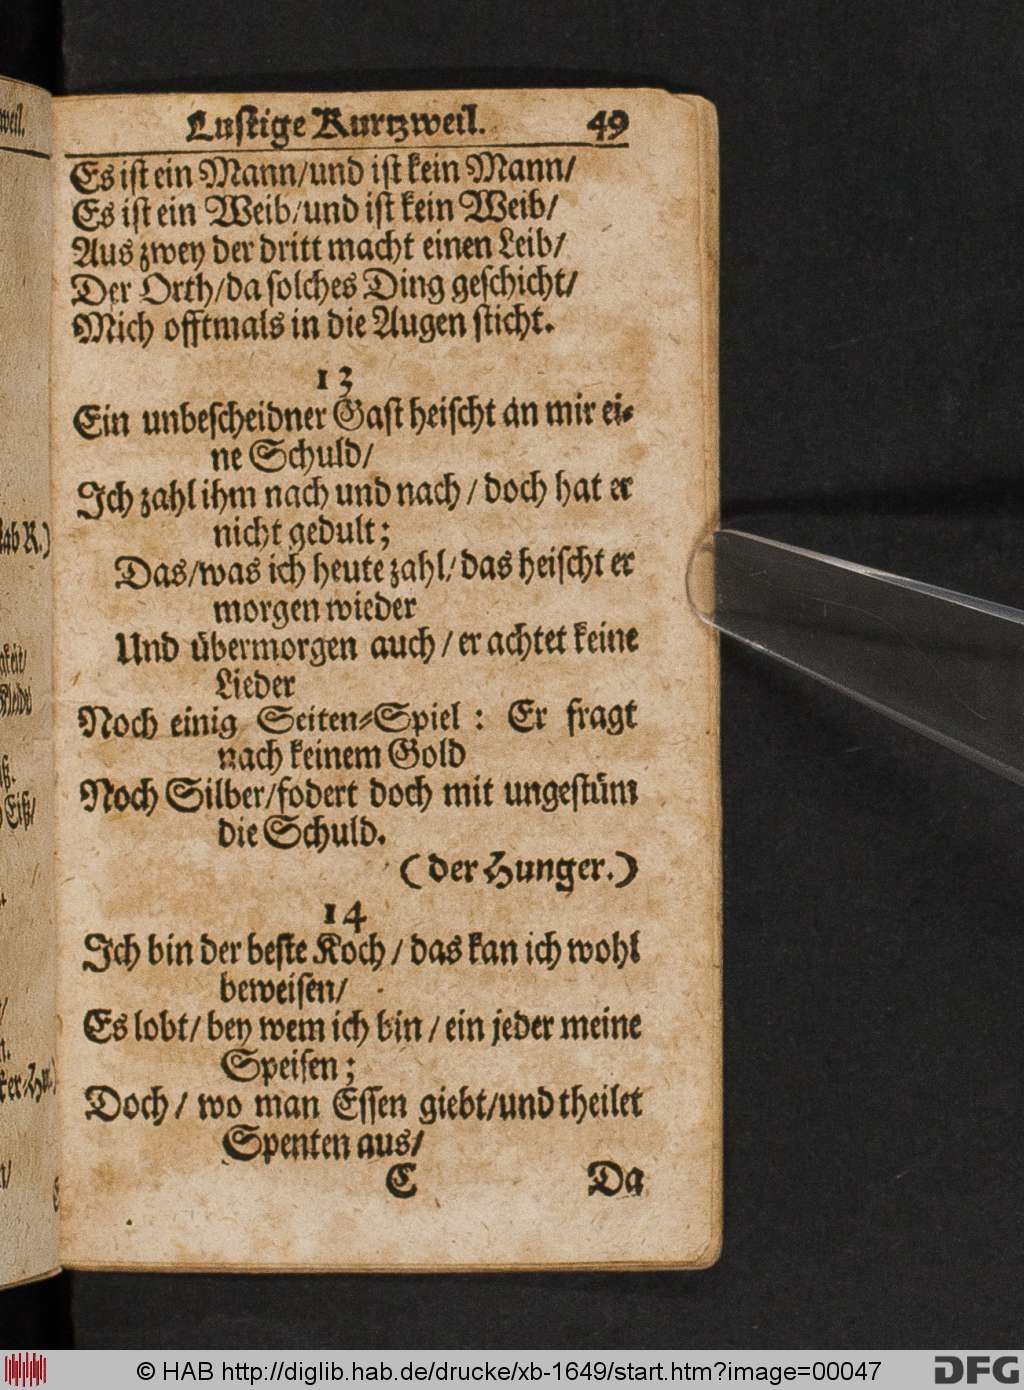 Lustige Kurtzweil. 49
Es ist ein Mann/und ist kein Mann/
Es ist ein Weib/und ist kein Weib/
Aus zwey der dritt macht einen Leib/
Der Orth/da solches Ding geschicht/
Mich offtmals in die Augen sticht.
13
Ein unbescheidner Gast heischt an mir ei-
ne Schuld/
Ich zahl ihm nach und nach / doch hat er
nicht gedult;
Das/was ich heute zahl/das heischt er
morgen wieder
Und übermorgen auch / er achtet keine
Lieder
Noch einig Seiten-Spiel : Er fragt
nach keinem Gold
Noch Silber/fodert doch mit ungestüm
die Schuld.
(der Hunger.)
14
Ich bin der beste Koch / das kan ich wohl
beweisen/
Es lobt/ bey wem ich bin / ein jeder meine
Speisen;
Doch/ wo man Essen giebt/und theilet
Spenten aus/
C Da
© HAB http://diglib.hab.de/drucke/xb-1649/start.htm?image=00047
DFG